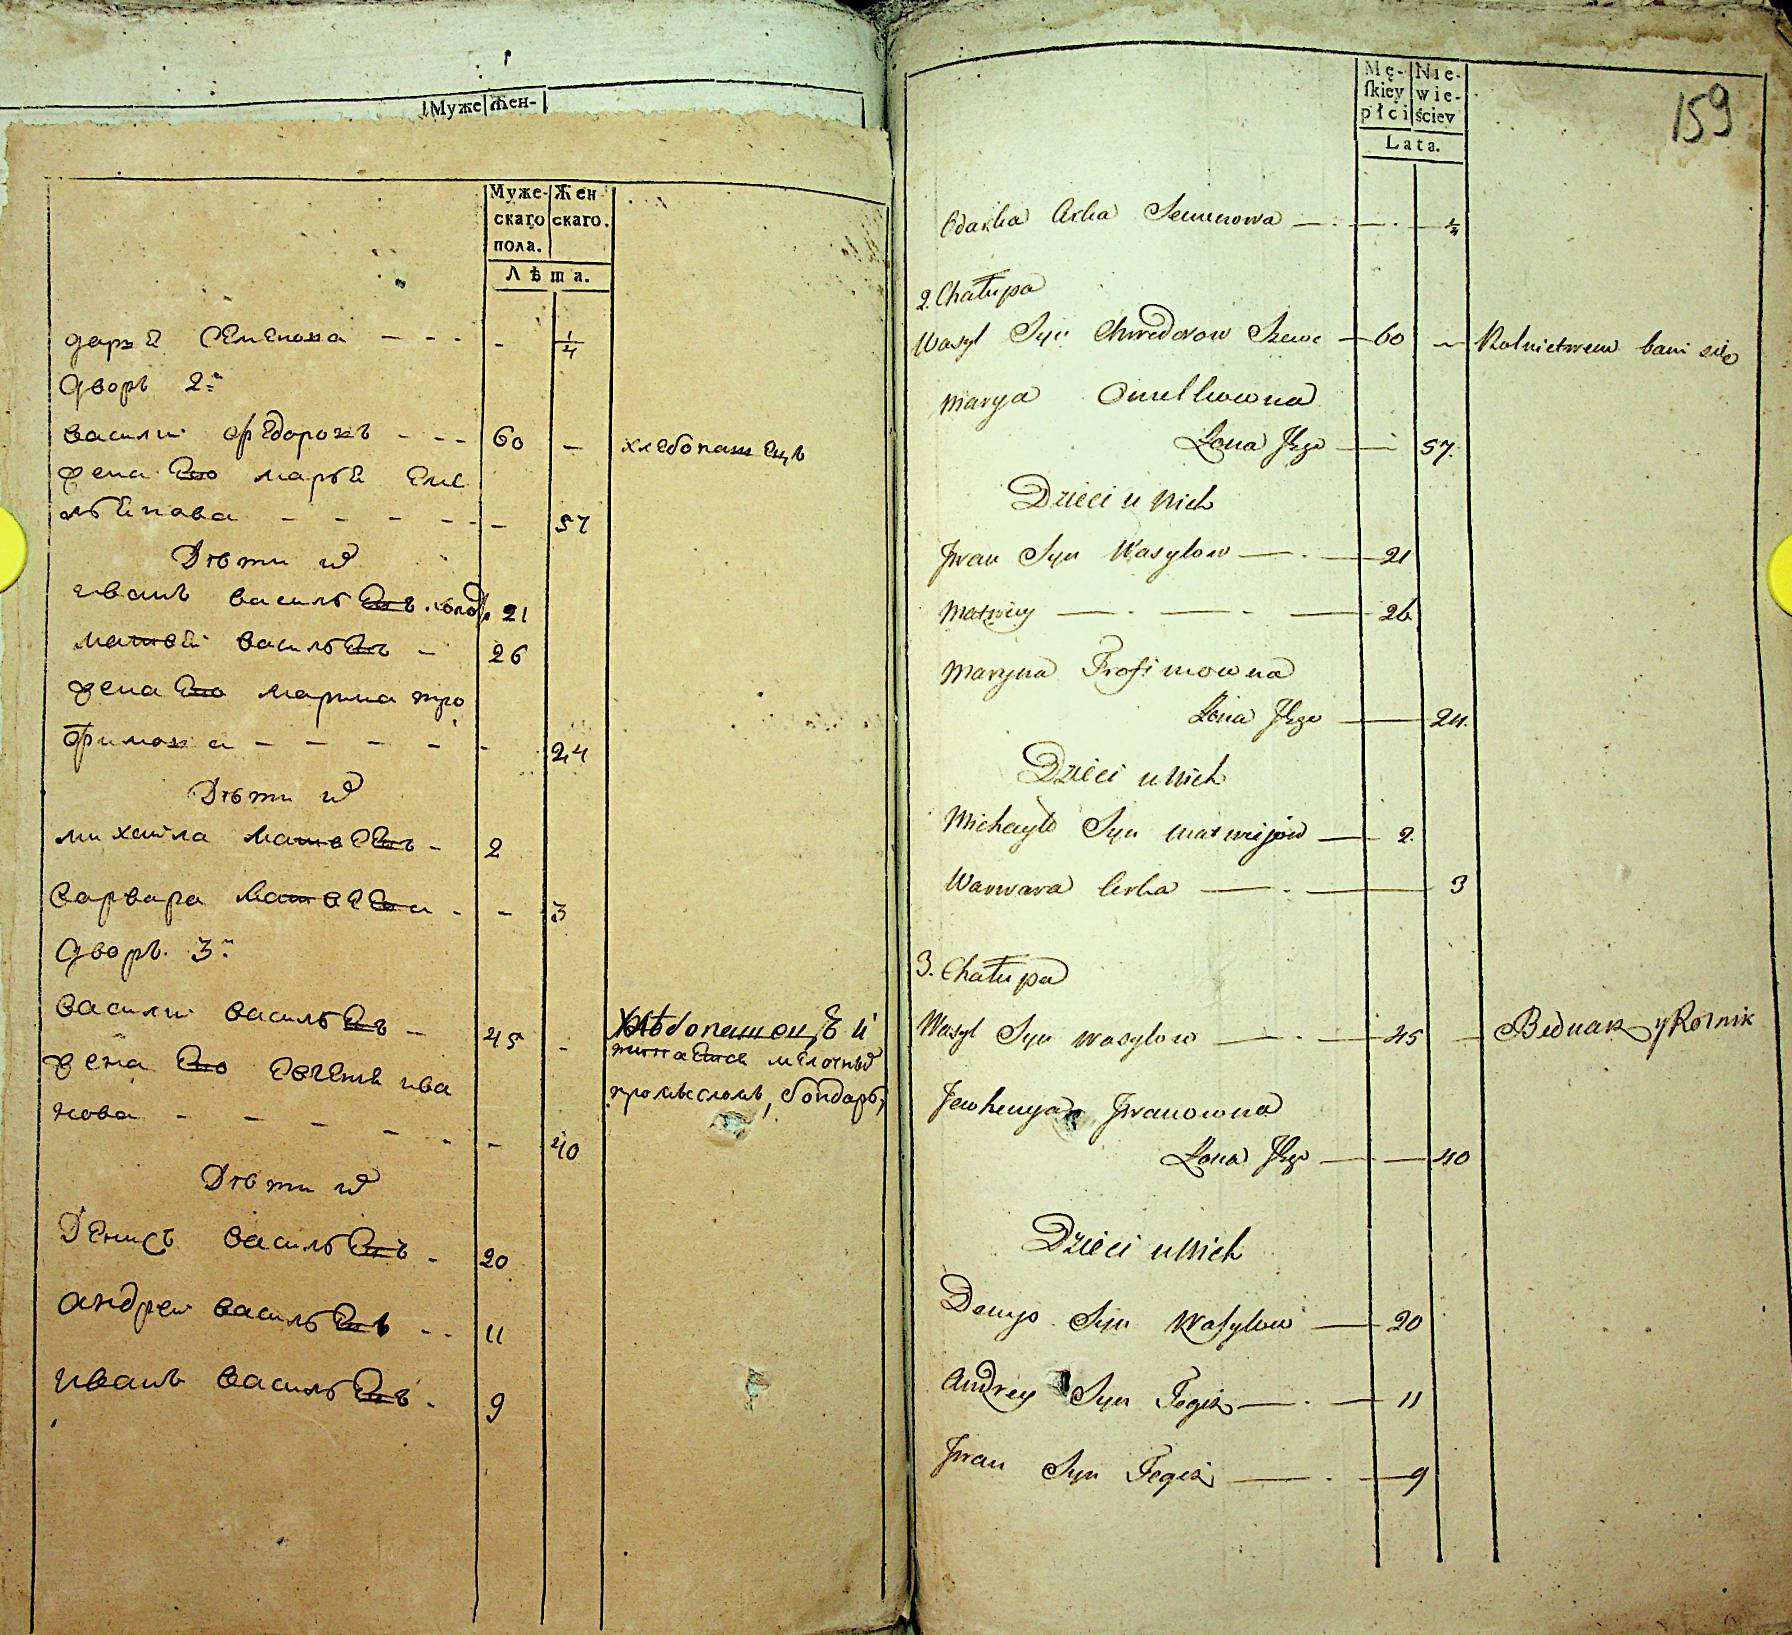 Муже Жен-
Муже- Жен
скаго скаго.
пола.
Лѣта.
дарья Семенова - - - - 1/4
Дворъ 2й
василий федоровъ - - - 60 - хлебопашецъ
жена его марья еме
льянова - - - - - - 57
Дѣти их
иванъ васильевъ холос 21
матвей васильевъ - 26
жена его марина тро
фимова - - - - - 24
Дѣти их
михайла матвеевъ - 2
варвара матвеева - - 3
Дворъ 3й
василий васильевъ - 45 - хлѣбопашецъ и
жена его евгения ива
питается мелочным
нова - - - - - - 40
промысломъ, бондарь,
Дѣти их
Денисъ васильевъ - 20
андрей васильевъ - - 11
иванъ васильевъ - 9
159
Mę- Nie-
skiey wie-
płci ściey
Lata.
Odarka Corka Semenowa - - - 1/4
2. Chałupa
Wasyl Syn Chwedorow Szewc - 60 - Rolnictwem bawi się
Marya Omelkowna
Żona Jego - 57.
Dzieci u Nich
Jwan Syn Wasylow - - - 21
Matwiey - - - - 26
Maryna Trofimowna
Żona Jego - 24.
Dzieci u Nich
Michayło Syn Matwijow - 2.
Warwara Corka - - - 3
3. Chałupa
Wasyl Syn Wasylow - - - 45 - Bednarz y Rolnik
Jewhenya Jwanowna
Żona Jego - - 40
Dzieci u Nich
Denys Syn Wasylow - 20
Andrey Syn Tegoż - - - 11
Jwan Syn Tegoż - - - 9